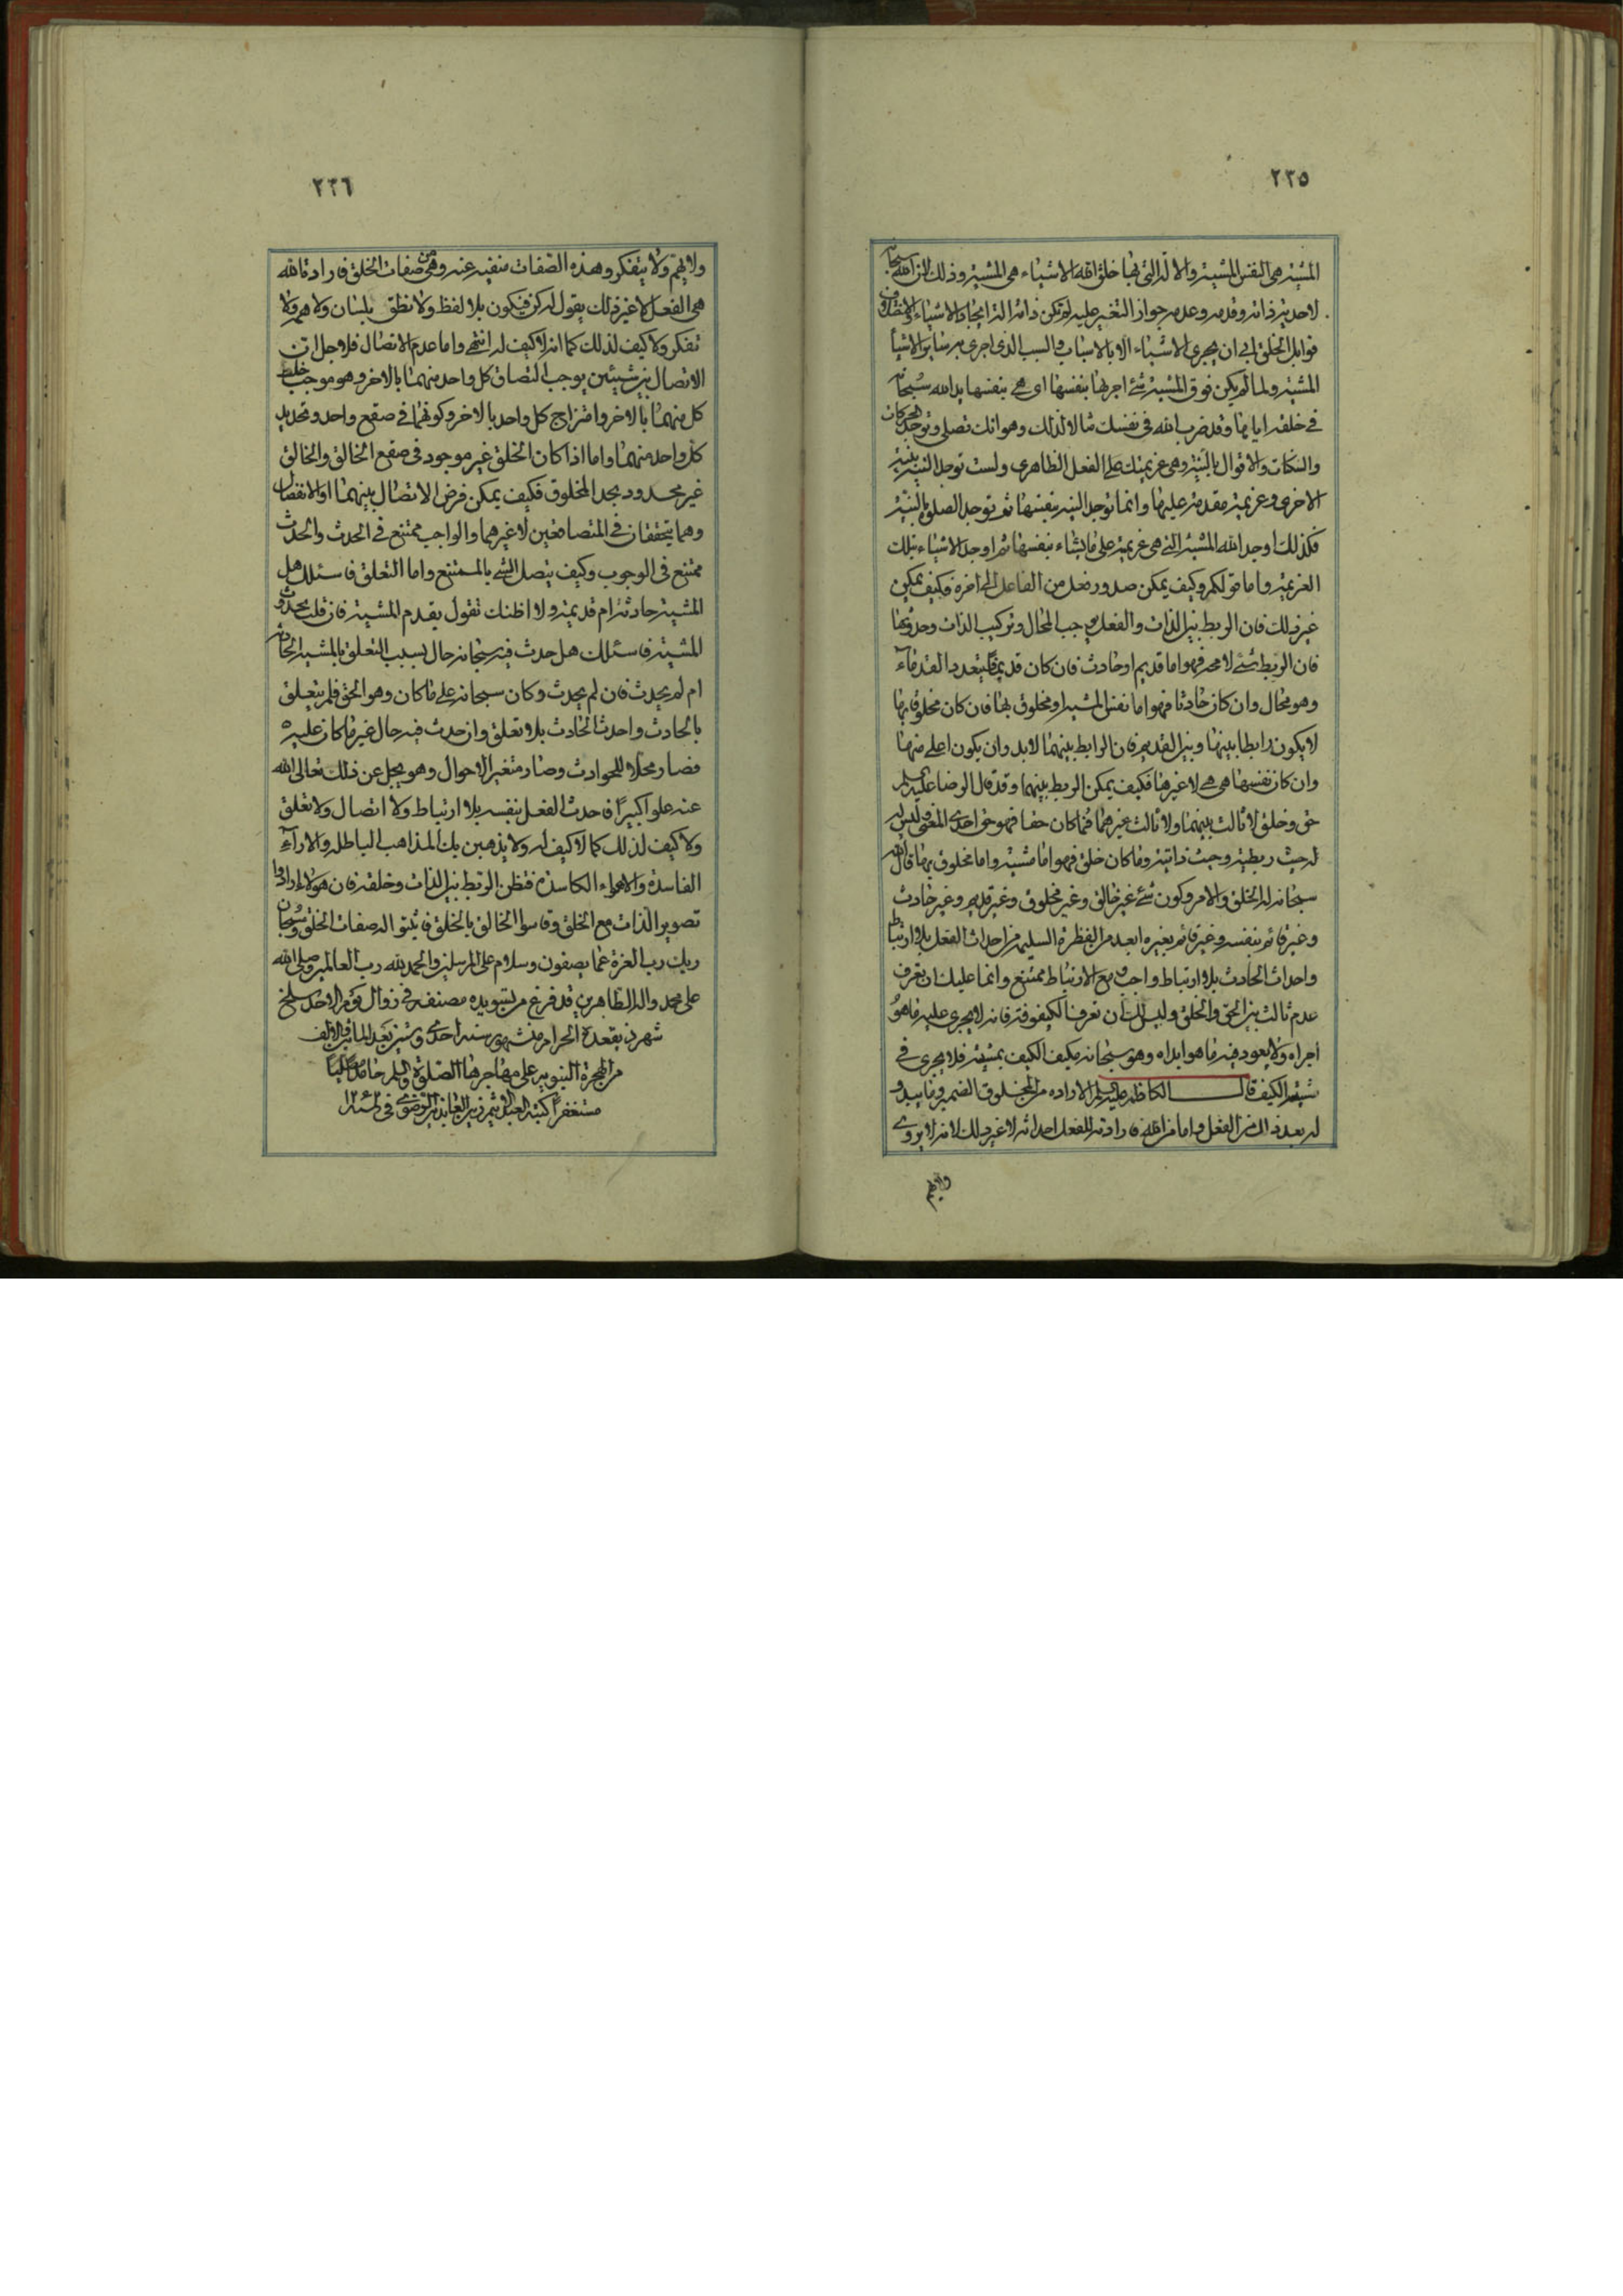 ٢٣٥
المشية هى النفس المشية والالة التى بها خلق الله الاشياء هى المشية وذلك لان الله سبحانه
لاحدية ذاته وقدمه وعدم جواز التغير عليه لم تكن ذاته الة ايجاد الاشياء
قوابل الخلق ابى ان يجرى الاشياء الا بالاسباب والسبب الذى اجرى به سائر الاشياء
المشية ولما لم يكن فوق المشية شئ اجريها بنفسها اى هى بنفسها يد الله سبحانه
فى خلقه اياها وقد ضرب الله فى نفسك مثالا لذلك وهو انك تصلى وتوجد الحركات
والسكنات والاقوال بالنية وهى عزيمتك على الفعل الظاهرى ولست توجد النية بنية
الاخرى وعزيمة مقدمة عليها وانما توجد النية بنفسها ثم توجد الصلوة بالنية
فكذلك اوجد الله المشية التى هى عزيمة على ما يشاء بنفسها ثم اوجد الاشياء بتلك
العزيمة واما قولكم وكيف يمكن صدور فعل من الفاعل الى اخره فكيف يمكن
غير ذلك فان الربط بين الذات والفعل يوجب المحال وتركيب الذات وحدوثها
فان الربط شئ لا محة فهو اما قديم او حادث فان كان قديما فيتعدد القدماء
وهو محال وان كان حادثا فهو اما نفس المشية او مخلوق بها فان كان مخلوقا بها
لا يكون رابطا بينها وبين القديم فان الرابط بينهما لا بد وان يكون اعلى منها
وان كان نفسها هى هى لا غيرها فكيف يمكن الربط بينهما وقد قال الرضا عليه السلم
حق وخلق لا ثالث بينهما ولا ثالث غيرهما فما كان حقا فهو حق احدى المعنى وليس له
له حيث ربطية وحيث ذاتية وما كان خلق فهو اما مشية واما مخلوق بها قال الله
سبحانه له الخلق والامر وكون شئ غير خالق وغير مخلوق وغير قديم وغير حادث
وغير قائم بنفسه وغير قائم بغيره ابعد من الفطرة السليمة من احداث الفعل بلا ارتباط
واحداث الحادث بلا ارتباط واجب ومع الارتباط ممتنع وانما عليك ان تعرف
عدم ثالث بين الحق والخلق وليس لك ان تعرف الكيفوفة فانه لا يجرى عليه ما هو
اجراه ولا يعود فيه ما هو ابداه وهو سبحانه مكيف الكيف بمشيته فلا يجرى فى
مشيته الكيف قال الكاظم عليه السلم الارادة من المخلوق الضمير وما يبدو
له بعد ذلك من الفعل واما من الله فارادته للفعل احداثه لا غير ذلك لانه لا يروى
ولا يهم
٢٣٦
ولا يهم ولا يتفكر وهذه الصفات منفية عنه وهى من صفات الخلق فارادة الله
هى الفعل لا غير ذلك يقول له كن فيكون بلا لفظ ولا نطق بلسان ولا همة ولا
تفكر ولا كيف لذلك كما انه لا كيف له انتهى واما عدم الاتصال فلاجل ان
الاتصال بين شيئين يوجب التصاق كل واحد منهما بالاخر وهو موجب خلط
كل منهما بالاخر وامتزاج كل واحد بالاخر وكونهما فى صقع واحد وتحديد
كل واحد منهما واما اذا كان الخلق غير موجود فى صقع الخالق والخالق
غير محدود بحد المخلوق فكيف يمكن فرض الاتصال بينهما او الانفصال
وهما يتحققان فى المتصاقعين لا غيرهما والواجب ممتنع فى الحدث والحدث
ممتنع فى الوجوب وكيف يتصل الشئ بالممتنع واما التعلق فاسئلك هل
المشية حادثة ام قديمة ولا اظنك تقول بقدم المشية فان قلت بحدوث
المشية فاسئلك هل حدث فيه سبحانه حال بسبب التعلق بالمشية الحادثة
ام لم يحدث فان لم يحدث وكان سبحانه على ما كان وهو الحق فلم يتعلق
بالحادث واحدث الحادث بلا تعلق وان حدث فيه حال غير ما كان عليه
فصار محلا للحوادث وصار متغير الاحوال وهو يجل عن ذلك تعالى الله
عنه علوا كبيرا فاحدث الفعل بنفسه بلا ارتباط ولا اتصال ولا تعلق
ولا كيف لذلك كما لا كيف له ولا يذهبن بك المذاهب الباطلة والاراء
الفاسدة والاهواء الكاسدة فتظن الربط بين الذات وخلقه فان هؤلاء ارادوا
تصوير الذات مع الخلق وقاسوا الخالق بالخلق فاثبتوا له صفات الخلق وسبحان
ربك رب العزة عما يصفون وسلام على المرسلين والحمد لله رب العالمين وصلى الله
على محمد واله الطاهرين قد فرغ من تسويده مصنفه فى زوال يوم الاحد سلخ
شهر ذيقعدة الحرام من شهور سنه احدى وستين بعد المأتين والالف
من الهجرة النبوية على مهاجرها الصلوة والسلم حامدا مصليا
مستغفرا كتبه العبد الاثيم زين العابدين الرضوى فى سنه ١٢٦٢